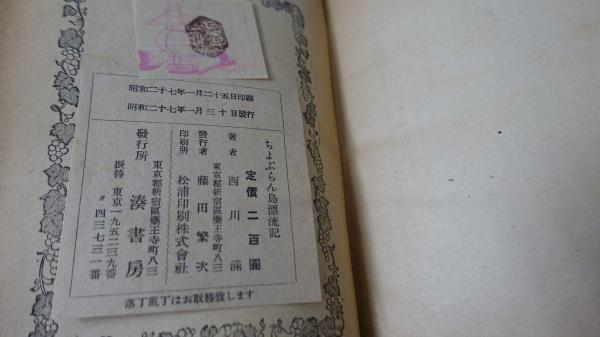 昭和二十七年一月二十五日印刷
昭和二十七年一月三十日發行
ちよぷらん島漂流記
定價二百圓
著者 西川滿
東京都新宿區藥王寺町八三
發行者 藤田繁次
印刷所 松浦印刷株式會社
東京都新宿區藥王寺町八三
發行所 湊書房
振替 東京一九五二三九番
〃四三七三一番
落丁亂丁はお取替致します